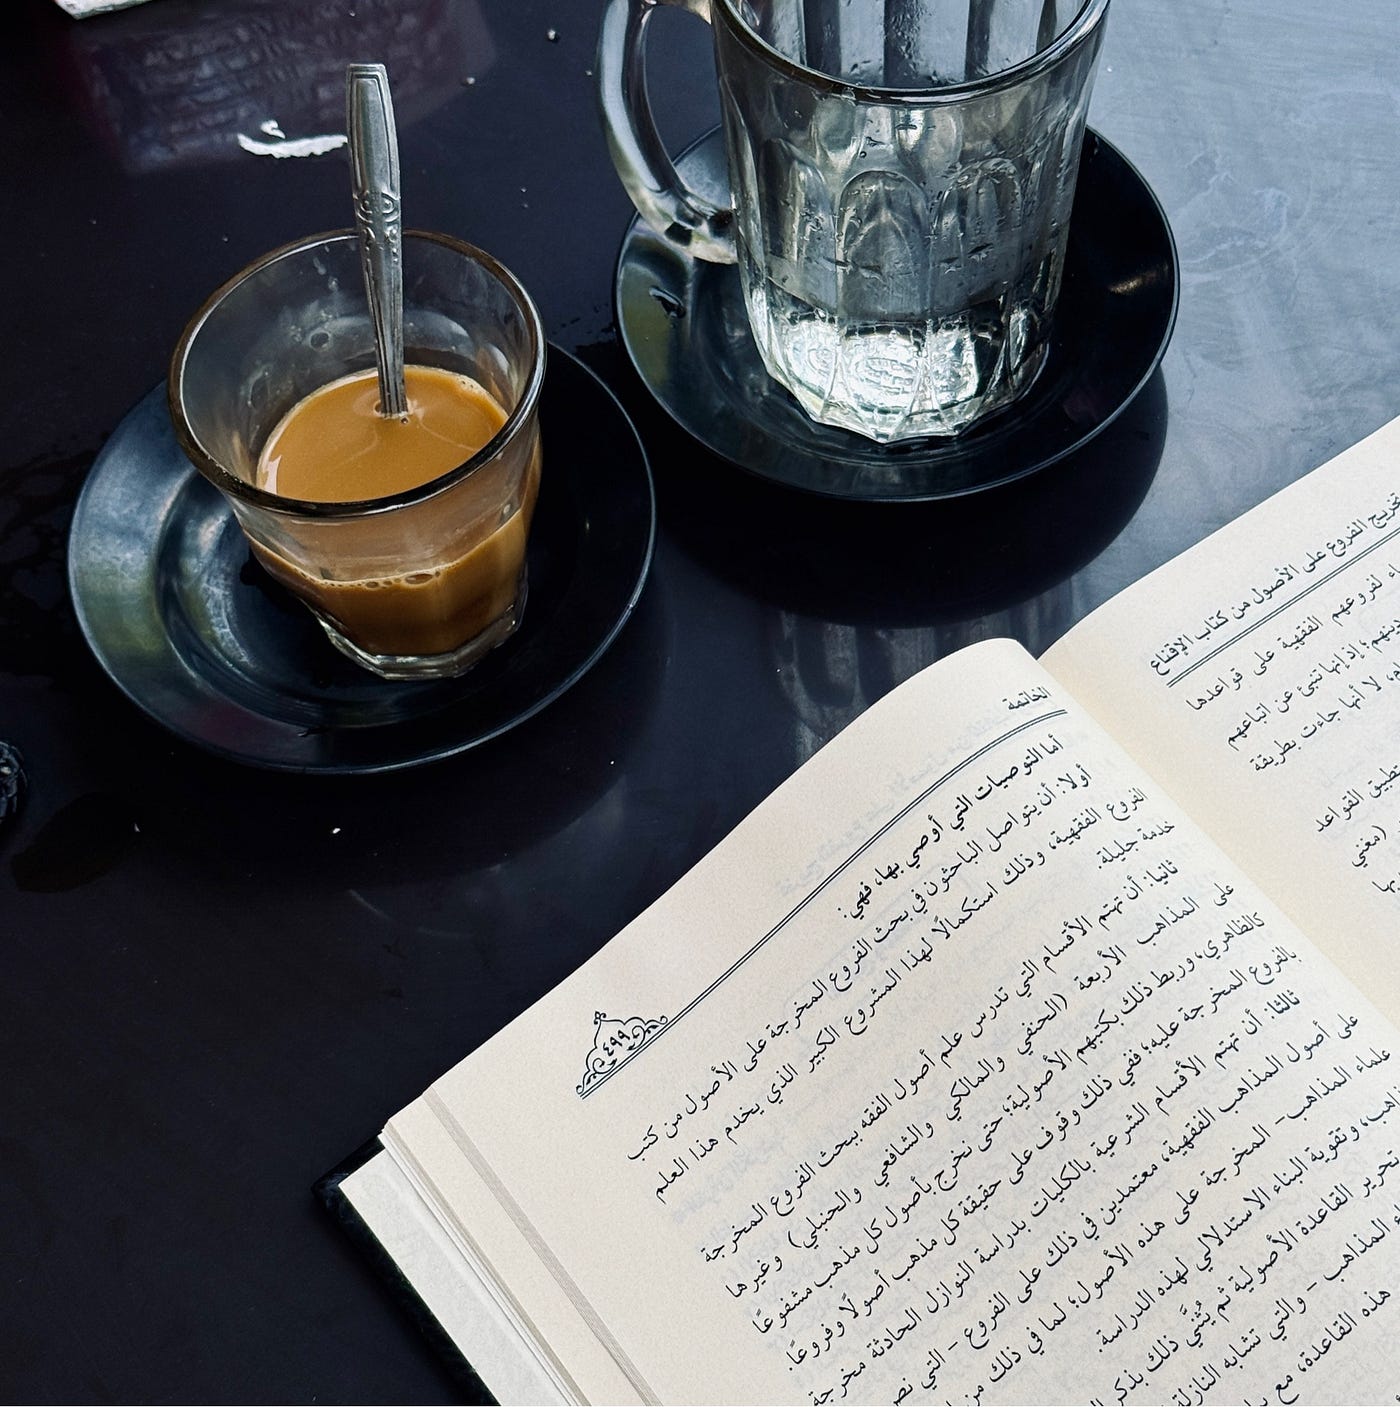 تخريج الفروع على الأصول من كتاب الإقناع
لفروعهم الفقهية على قواعدها
إذ إنها تنبئ عن اتباعهم
لا أنها جاءت بطريقة
تطبيق القواعد
(مغني
الخاتمة
٤٩٩
أما التوصيات التي أوصي بها، فهي:
أولا: أن يتواصل الباحثون في بحث الفروع المخرجة على الأصول من كتب
الفروع الفقهية، وذلك استكمالًا لهذا المشروع الكبير الذي يخدم هذا العلم
خدمة جليلة.
ثانيا: أن تهتم الأقسام التي تدرس علم أصول الفقه ببحث الفروع المخرجة
على المذاهب الأربعة (الحنفي والمالكي والشافعي والحنبلي) وغيرها
كالظاهري، وربط ذلك بكتبهم الأصولية؛ حتى نخرج بأصول كل مذهب مشفوعًا
بالفروع المخرجة عليه؛ ففي ذلك وقوف على حقيقة كل مذهب أصولًا وفروعًا.
ثالثا: أن تهتم الأقسام الشرعية بالكليات بدراسة النوازل الحادثة مخرجة
على أصول المذاهب الفقهية، معتمدين في ذلك على الفروع - التي نص
علماء المذاهب- المخرجة على هذه الأصول؛ لما في ذلك من
وتقوية البناء الاستدلالي لهذه الدراسة.
تحرير القاعدة الأصولية ثم يُثنَّي ذلك بذكر
المذاهب - والتي تشابه النازلة
هذه القاعدة، مع